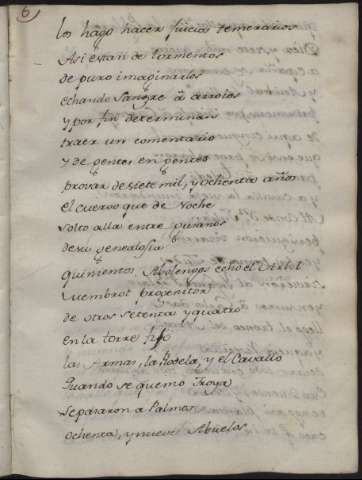 6
los hago hacer juicios temerarios
Asi estan de tormentos
de puro imaginarlos
echando Sangre á arroios
y por fin determinan
traer un comentario
y de gentes en gentes
provar de siete mil, y ochenta años
el cuervo que de Noche
solto alla entre
de su genealogia
quinientos Abolengos echó el
Nembrot progenitor
de otros setenta y quatro
en la torre fijo
las Armas, la Rodela, y el Cavallo
Quando se quemo Troya
se pararon a Palmas
ochenta, y nueve Abuelos